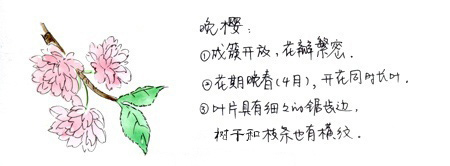 晚樱:
①成簇开放,花瓣繁密.
②花期晚春(4月),开花同时长叶.
③叶片具有细细的锯齿边,
树干和枝条也有横纹.